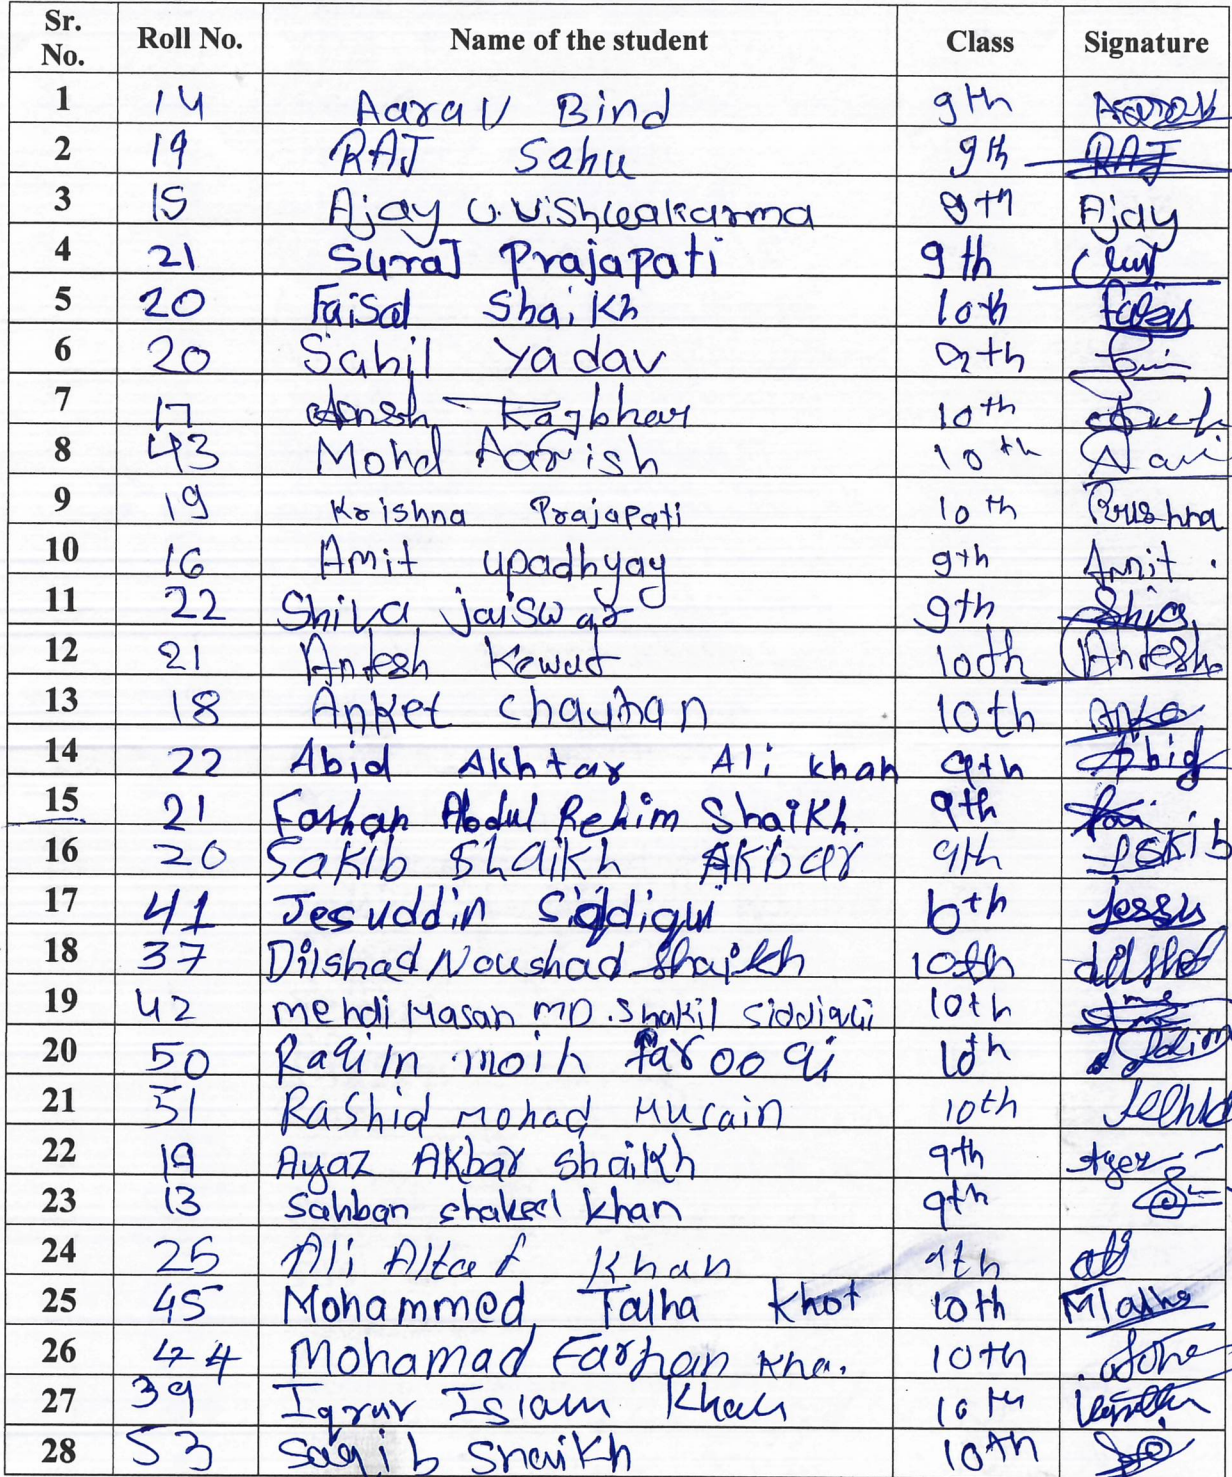 Sr. No. Roll No. Name of the student Class Signature
1 14 Aarav Bind 9th Aarav
2 19 RAJ Sahu 9th RAJ
3 15 Ajay U. Vishwakarma 9th Ajay
4 21 Suraj Prajapati 9th
5 20 Faisal Shaikh 10th
6 20 Sahil Yadav 9th
7 17 Ansh Rajbhar 10th
8 43 Mohd Aarish 10th
9 19 Krishna Prajapati 10th Krushna
10 16 Amit upadhyay 9th Amit
11 22 Shiva jaiswar 9th Shiva
12 21 Andesh Kewat 10th Andesh
13 18 Anket chauhan 10th Anke
14 22 Abid Akhtar Ali khan 9th Abid
15 21 Farhan Abdul Rehim Shaikh. 9th
16 20 Sakib Shaikh Akbar 9th Sakib
17 41 Jesuddin Siddiqui 10th jessu
18 37 Dilshad Noushad Shaikh 10th dilshd
19 42 mehdi Hasan MD. Shakil Siddiqui 10th
20 50 Raqim moin farooqi 10th
21 51 Rashid Mohad Husain 10th
22 19 Ayaz Akbar Shaikh 9th
23 13 Sahban shakeel khan 9th
24 25 Ali Altaf Khan 9th ali
25 45 Mohammed Talha Khot 10th
26 44 Mohamad Farhan Kha. 10th
27 39 Iqrar Islam Khan 10th
28 53 Saqib Shaikh 10th